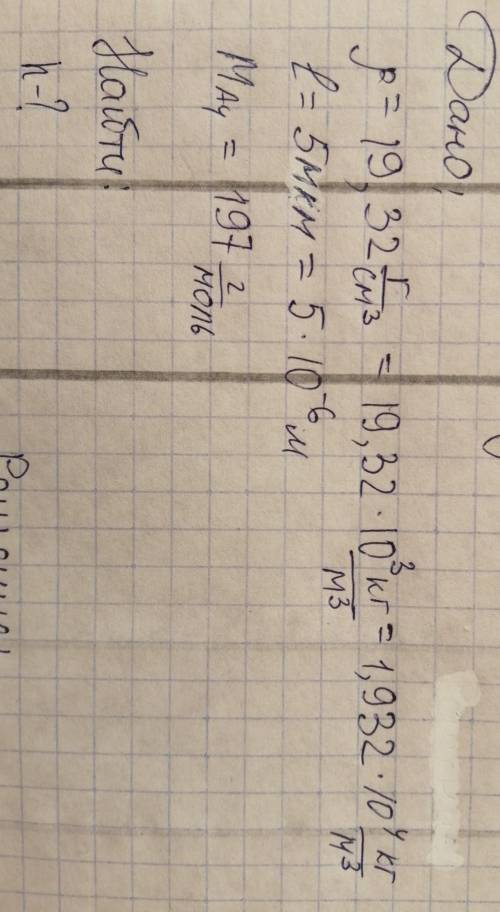 Дано:
ρ = 19,32 г/см³ = 19,32 · 10³ кг/м³ = 1,932 · 10⁴ кг/м³
ℓ = 5 мкм = 5 · 10⁻⁶ м
M Au = 197 г/моль
Найти:
n-?